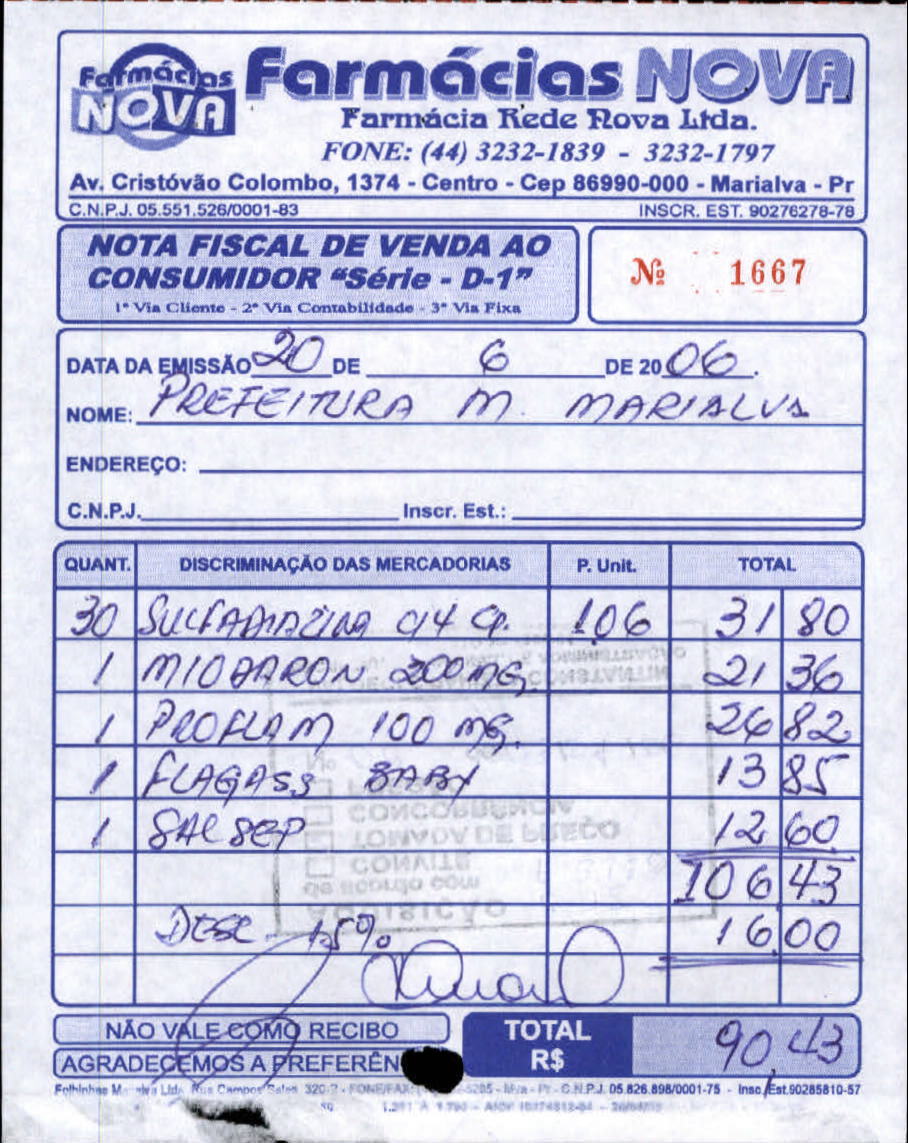 Farmácias NOVA
Farmácias NOVA
Farmácia Rede Nova Ltda.
FONE: (44) 3232-1839 - 3232-1797
Av. Cristóvão Colombo, 1374 - Centro - Cep 86990-000 - Marialva - Pr
C.N.P.J. 05.551.526/0001-83 INSCR. EST. 90276278-78
NOTA FISCAL DE VENDA AO
CONSUMIDOR "Série - D-1"
1ª Via Cliente - 2ª Via Contabilidade - 3ª Via Fixa
Nº 1667
DATA DA EMISSÃO 20 DE 6 DE 2006.
NOME: PREFEITURA M. MARIALVA
ENDEREÇO:
C.N.P.J. Inscr. Est.:
QUANT. DISCRIMINAÇÃO DAS MERCADORIAS P. Unit. TOTAL
30 SULFADIAZINA C/4 CP. 1.06 31 80
1 MIODARON 200 MG. 21 36
1 PROFLAM 100 MG. 26 82
1 FLAGASS BABY 13 85
1 SALSEP 12 60
106 43
DESC. 15% 16 00
AQUISIÇÃO
de acordo com
CONVITE
TOMADA DE PREÇO
CONCORRÊNCIA
NÃO VALE COMO RECIBO
AGRADECEMOS A PREFERÊN
TOTAL
R$ 90,43
Folhinhas Ltda. Rua Campos Sales, 320 - FONE/FAX: 5285 - M/a - Pr - C.N.P.J. 05.826.898/0001-75 - Insc. Est. 90285810-57